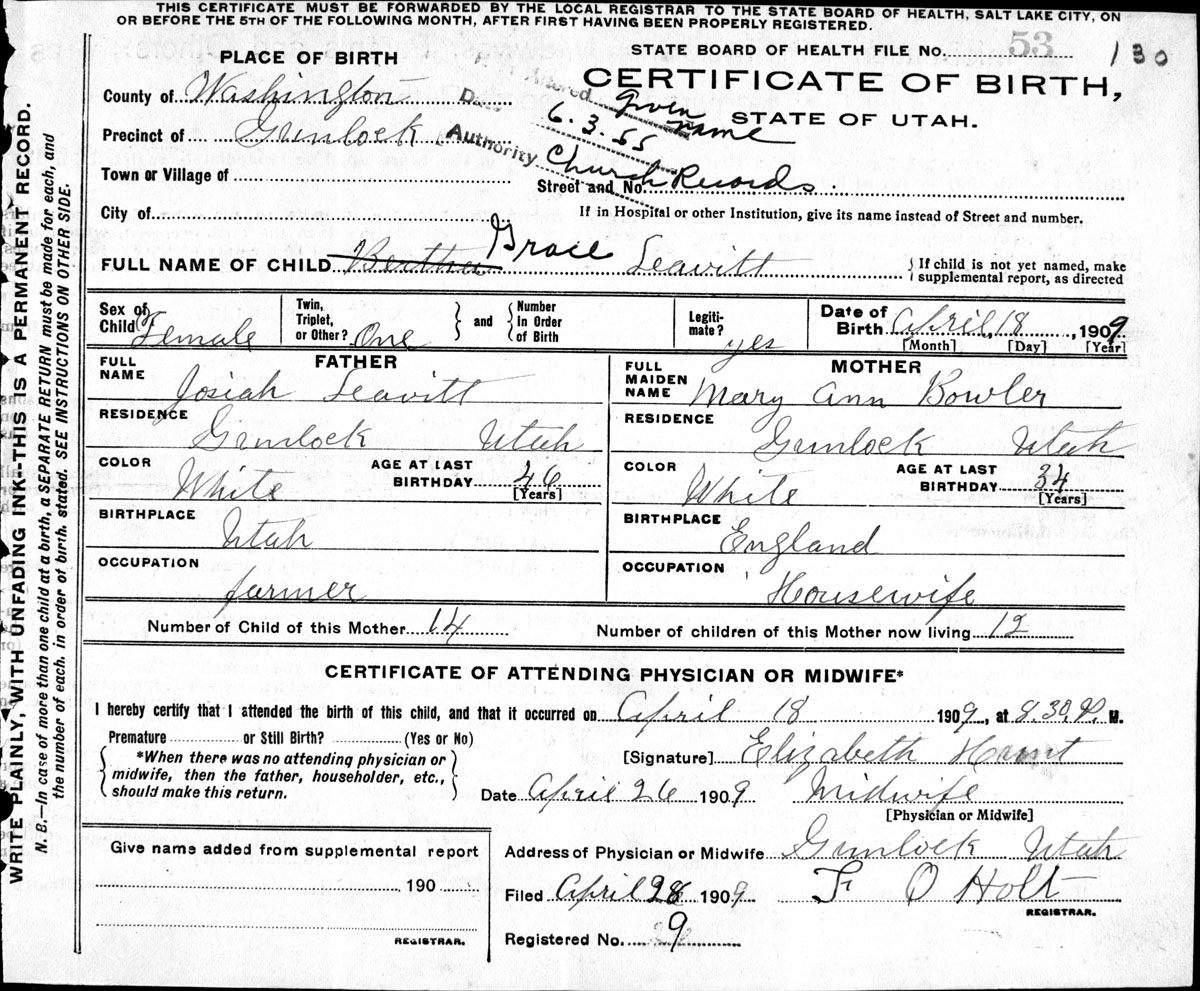 THIS CERTIFICATE MUST BE FORWARDED BY THE LOCAL REGISTRAR TO THE STATE BOARD OF HEALTH, SALT LAKE CITY, ON
OR BEFORE THE 5TH OF THE FOLLOWING MONTH, AFTER FIRST HAVING BEEN PROPERLY REGISTERED.
STATE BOARD OF HEALTH FILE No. 53 130
PLACE OF BIRTH
CERTIFICATE OF BIRTH,
STATE OF UTAH.
County of Washington
Date 6.3.55
Altered given name
Precinct of Gunlock
Authority Church Records.
Town or Village of
Street and No.
City of
If in Hospital or other Institution, give its name instead of Street and number.
FULL NAME OF CHILD Bertha Grace Leavitt
If child is not yet named, make
supplemental report, as directed
Sex of Child Female
Twin, Triplet, or Other? One
and Number In Order of Birth
Legiti-mate? yes
Date of Birth April, 18, 1909
[Month] [Day] [Year]
FATHER
FULL NAME Josiah Leavitt
RESIDENCE Gunlock Utah
COLOR White
AGE AT LAST BIRTHDAY 46
[Years]
BIRTHPLACE Utah
OCCUPATION farmer
MOTHER
FULL MAIDEN NAME Mary Ann Bowler
RESIDENCE Gunlock Utah
COLOR White
AGE AT LAST BIRTHDAY 34
[Years]
BIRTHPLACE England
OCCUPATION Housewife
Number of Child of this Mother 14
Number of children of this Mother now living 12
CERTIFICATE OF ATTENDING PHYSICIAN OR MIDWIFE*
I hereby certify that I attended the birth of this child, and that it occurred on April 18 1909, at 8.30 P. M.
Premature or Still Birth? (Yes or No)
*When there was no attending physician or
midwife, then the father, householder, etc.,
should make this return.
[Signature] Elizabeth Hunt
Date April 26 1909 Midwife
[Physician or Midwife]
Give name added from supplemental report
190
REGISTRAR.
Address of Physician or Midwife Gunlock Utah
Filed April 28 1909 F O Holt
REGISTRAR.
Registered No. 9
WRITE PLAINLY, WITH UNFADING INK--THIS IS A PERMANENT RECORD.
N. B.—In case of more than one child at a birth, a SEPARATE RETURN must be made for each, and
the number of each, in order of birth, stated. SEE INSTRUCTIONS ON OTHER SIDE.